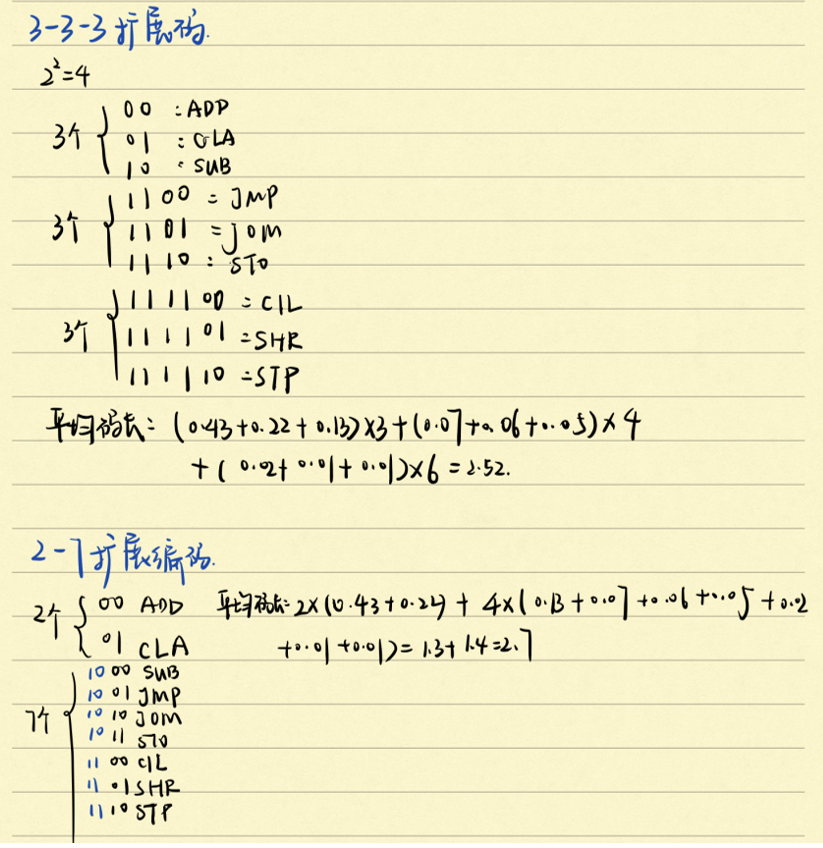 3-3-3扩展码.
2²=4
3个 { 00 : ADD
01 : CLA
10 : SUB
3个 { 1100 = JMP
1101 = JOM
1110 : STO
3个 { 111100 = CIL
111101 = SHR
111110 = STP
平均码长: (0.43+0.22+0.13)×3+(0.07+0.06+0.05)×4
+(0.02+0.01+0.01)×6=2.52.
2-7扩展编码.
2个 { 00 ADD 平均码长: 2×(0.43+0.22)+4×(0.13+0.07+0.06+0.05+0.02
01 CLA +0.01+0.01)=1.3+1.4=2.7
7个 { 1000 SUB
1001 JMP
1010 JOM
1011 STO
1100 CIL
1101 SHR
1110 STP